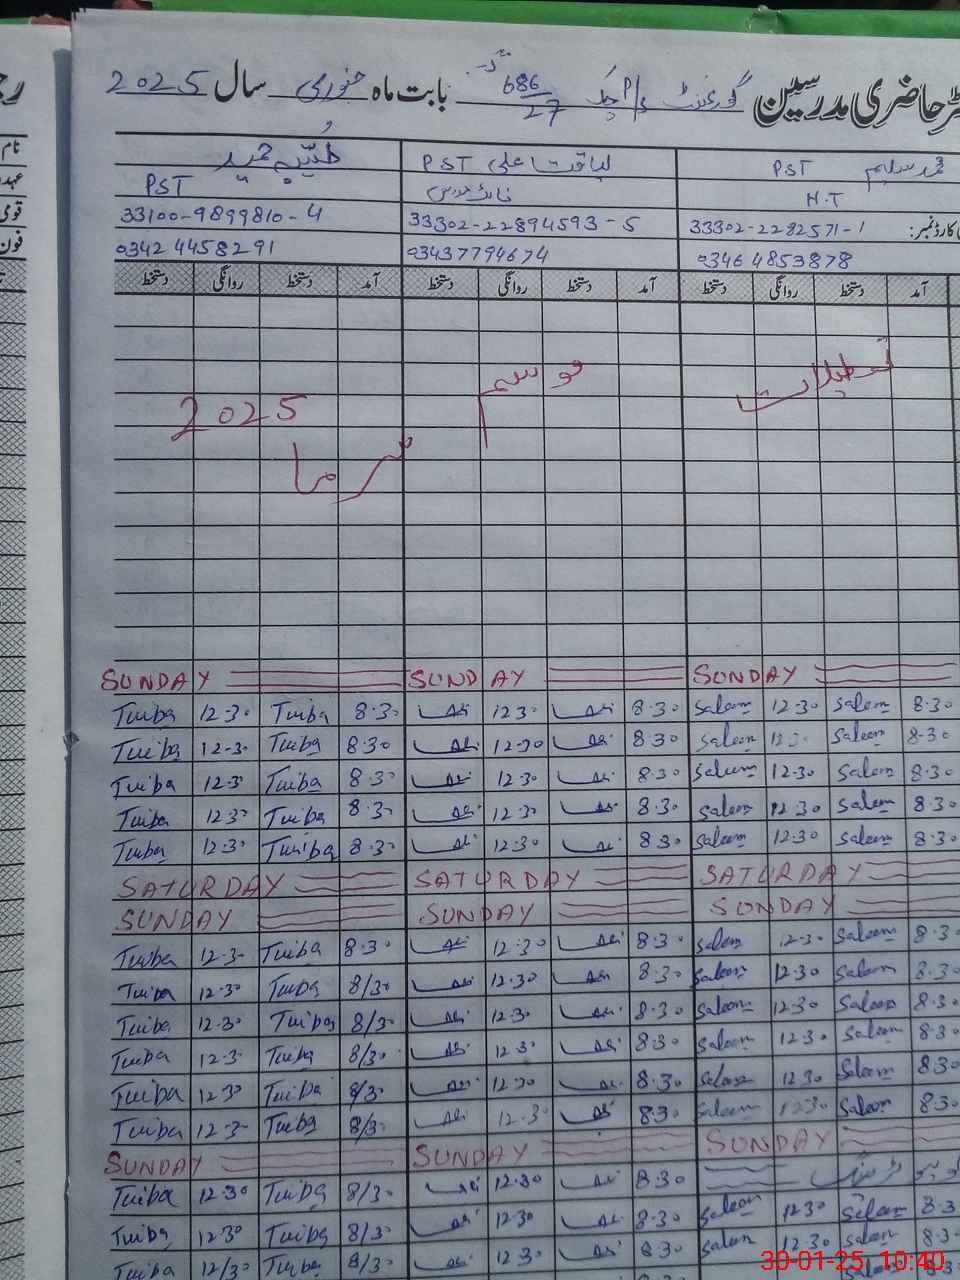 رجسٹر حاضری مدرسین گورنمنٹ P/S چک 686/27 بابت ماہ جنوری سال 2025
محمد سلیم PST لیاقت علی PST طیبہ حمید
H.T PST
33302-2282571-1 33302-22894593-5 33100-9899810-4
03464853878 03437794674 03424458291
آمد دستخط روانگی دستخط آمد دستخط روانگی دستخط آمد دستخط روانگی دستخط
تعطیلات موسم سرما 2025
SUNDAY SUNDAY SUNDAY
Tuiba 12-30 Tuiba 8.30 علی 12 30 علی 8.30 Saleem 12-30 Saleem 8.30
Tuiba 12-30 Tuiba 8.30 علی 12-30 علی 8.30 Saleem 12-30 Saleem 8-30
Tuiba 12-30 Tuiba 8.30 علی 12-30 علی 8.30 Saleem 12-30 Saleem 8.30
Tuiba 12-30 Tuiba 8.30 علی 12-30 علی 8.30 Saleem 12-30 Saleem 8.30
Tuiba 12-30 Tuiba 8.30 علی 12-30 علی 8 30 Saleem 12-30 Saleem 8.30
SATURDAY SATURDAY SATURDAY
SUNDAY SUNDAY SUNDAY
Tuiba 12-30 Tuiba 8.30 علی 12-30 علی 8.30 Saleem 12-30 Saleem 8.30
Tuiba 12-30 Tuiba 8/30 علی 12-30 علی 8.30 Saleem 12-30 Saleem 8.30
Tuiba 12-30 Tuiba 8/30 علی 12-30 علی 8.30 Saleem 12-30 Saleem 8.30
Tuiba 12-30 Tuiba 8/30 علی 12-30 علی 8.30 Saleem 12-30 Saleem 8.30
Tuiba 12-30 Tuiba 8/30 علی 12-30 علی 8.30 Saleem 12-30 Saleem 8.30
Tuiba 12-30 Tuiba 8/30 علی 12-30 علی 8.30 Saleem 12-30 Saleem 8.30
SUNDAY SUNDAY SUNDAY
Tuiba 12-30 Tuiba 8/30 علی 12-30 علی 8.30
Tuiba 12-30 Tuiba 8/30 علی 12-30 علی 8.30 Saleem 12-30 Saleem 8.3
Tuiba 12/30 Tuiba 8/30 علی 12-30 علی 8.30 Saleem 12-30 Saleem 8.3
30-01-25 10:40